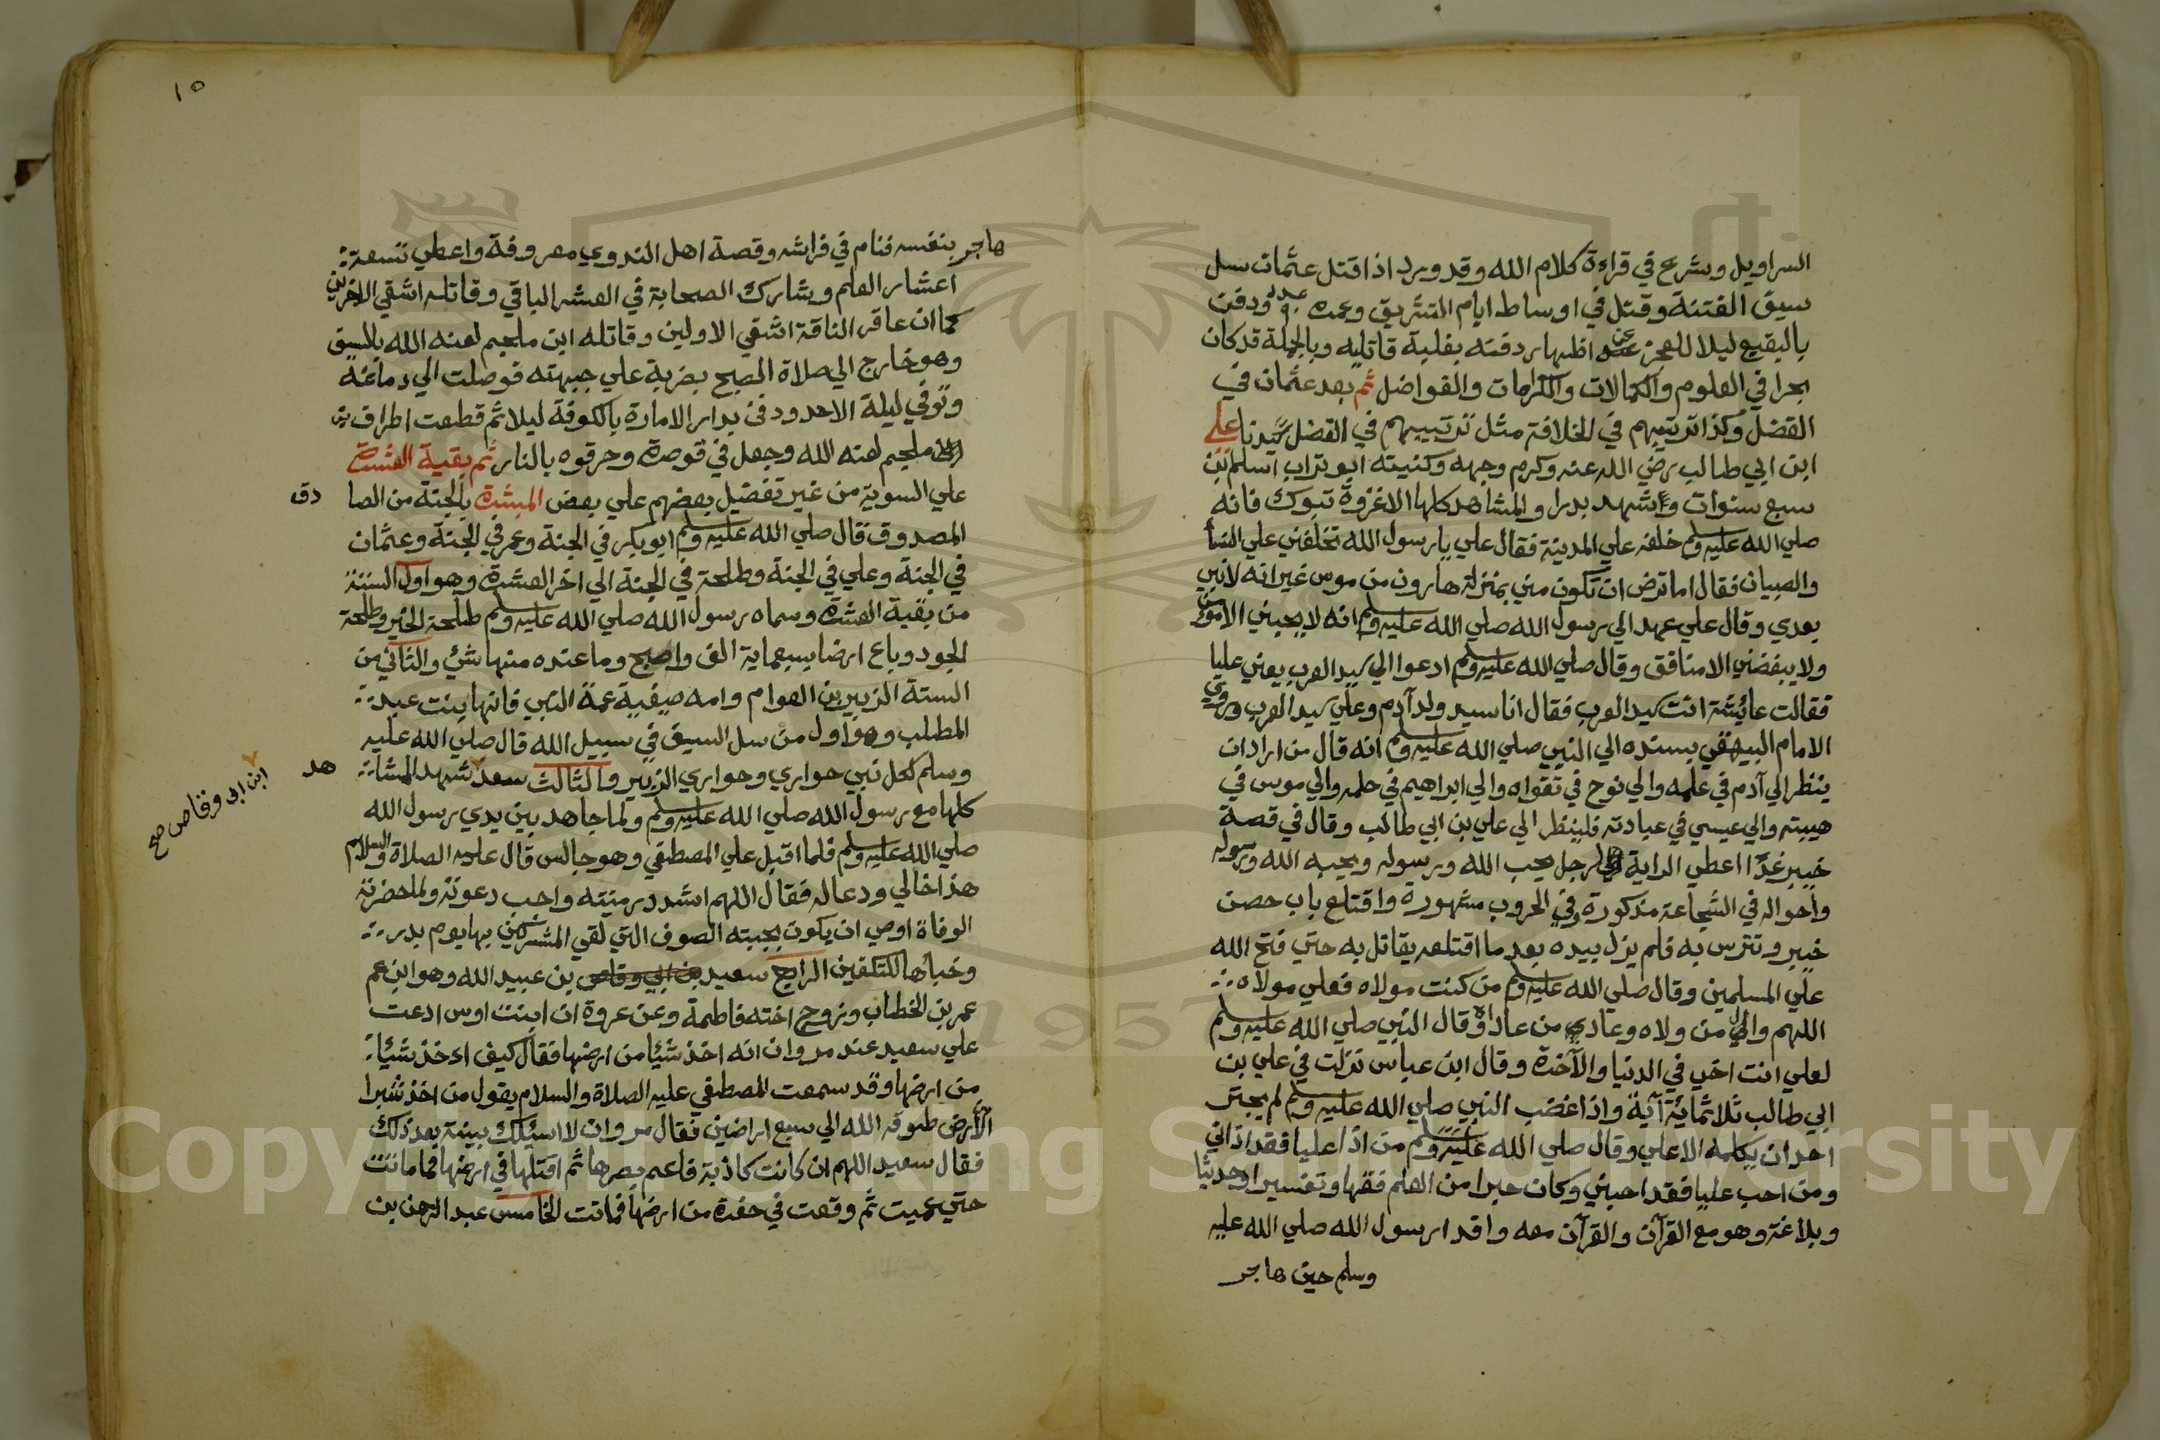 السراويل وشرع في قراءة كلام الله وقد ورد اذا قتل عثمان سل
سيف الفتنة وقتل في اوساط ايام التشريق وعمره ودفن
بالبقيع ليلا للعجز عن اظهار دفنه بغلبة قاتليه وبالجملة قد كان
بحرا في العلوم والكمالات والكرامات والفواضل ثم بعد عثمان في
الفضل وكذا ترتيبهم في الخلافة مثل ترتيبهم في الفضل سيدنا علي
ابن ابي طالب رضي الله عنه وكرم وجهه وكنيته ابو تراب اسلم ابن
سبع سنوات وشهد بدرا والمشاهد كلها الا غزوة تبوك فانه
صلي الله عليه وسلم خلفه علي المدينة فقال علي يا رسول الله تخلفني علي النسا
والصبيان فقال اما ترض ان تكون مني بمنزلة هارون من موسي غير انه لا نبي
بعدي وقال علي عهد الي رسول الله صلي الله عليه وسلم انه لا يحبني الا مومن
ولا يبغضني الا منافق وقال صلي الله عليه وسلم ادعوا الي سيد العرب يعني عليا
فقالت عائشة انت سيد العرب فقال انا سيد ولد آدم وعلي سيد العرب وروي
الامام البيهقي بسنده الي النبي صلي الله عليه وسلم انه قال من اراد ان
ينظر الي آدم في علمه والي نوح في تقواه والي ابراهيم في حلمه والي موسي في
هيبته والي عيسي في عبادته فلينظر الي علي بن ابي طالب وقال في قصة
خيبر غدا اعطي الراية رجل يحب الله ورسوله ويحبه الله ورسوله
واحواله في الشجاعة مذكورة وفي الحروب مشهورة واقتلع باب حصن
خيبر وتترس به فلم يزل بيده بعد ما اقتلعه يقاتل به حتي فتح الله
علي المسلمين وقال صلي الله عليه وسلم من كنت مولاه فعلي مولاه
اللهم وال من ولاه وعادي من عاداه وقال النبي صلي الله عليه وسلم
لعلي انت اخي في الدنيا والآخرة وقال ابن عباس نزلت في علي بن
ابي طالب ثلاثمائة آية واذا غضب النبي صلي الله عليه وسلم لم يجتر
احد ان يكلمه الا علي وقال صلي الله عليه وسلم من اذا عليا فقد اذاني
ومن احب عليا فقد احبني وكان حبرا من العلم فقها وتفسيرا وحديثا
وبلاغة وهو مع القرآن والقرآن معه واقد ا رسول الله صلي الله عليه
وسلم حين هاجر
١٥
هاجر بنفسه فنام في فراشه وقصة اهل الندوي معروفة واعطي تسعة
اعشار العلم وشارك الصحابة في العشر الباقي وقاتله اشقي الاخرين
كما ان عاقر الناقة اشقي الاولين وقاتله ابن ملجم لعنه الله بالسيف
وهو خارج الي صلاة الصبح بضربة علي جبهته فوصلت الي دماغه
وتوفي ليلة الاحد ودفن بدار الامارة بالكوفة ليلا ثم قطعت اطراف بن
ملجم لعنه الله وجعل في قوصرة وحرقوه بالنار ثم بقية العشرة
علي السوية من غير تفضيل بعضهم علي بعض المبشرة بالجنة من الصا
دق
المصدوق فقال صلي الله عليه وسلم ابو بكر في الجنة وعمر في الجنة وعثمان
في الجنة وعلي في الجنة وطلحة في الجنة الي اخر العشرة وهو اول الستة
من بقية العشرة وسماه رسول الله صلي الله عليه وسلم طلحة الخير وطلحة
الجود وباع ارضا بسبعماية الف واصبح وما عنده منها شئ والثاني من
الستة الزبير بن العوام وامه صيفية عمة النبي فانها بنت عبد
المطلب وهو اول من سل السيف في سبيل الله قال صلي الله عليه
وسلم لكل نبي حواري وحواري الزبير والثالث سعد شهد المشا
هد
ابن ابي وقاص صح
كلها مع رسول الله صلي الله عليه وسلم ولما جاهد بين يدي رسول الله
صلي الله عليه وسلم فلما اقبل علي المصطفي وهو جالس قال عليه الصلاة والسلام
هذا خالي ودعا له فقال اللهم اشدد رميته واجب دعوته ولما حضرته
الوفاة اوصي ان يكون بجبته الصوف التي لقي المشركين بها يوم بدر
وخباها للتكفين الرابع سعيد بن ابي وقاص بن عبيد الله وهو ابن عم
عمر بن الخطاب وتزوج اخته فاطمة وعن عروة ان ابنت اوس ادعت
علي سعيد عند مروان انه اخذ شيئا من ارضها فقال كيف اخذ شيئا
من ارضها وقد سمعت المصطفي عليه الصلاة والسلام يقول من اخذ شبرا
الأرض طوقه الله الي سبع اراضين فقال مروان لا اسئلك بينة بعد ذلك
فقال سعيد اللهم ان كانت كاذبة فاعم بصرها ثم اقتلها في ارضها فما ماتت
حتي عميت ثم وقعت في حفرة من ارضها فماتت الخامس عبد الرحمن بن
Copyright © King Saud University
1957